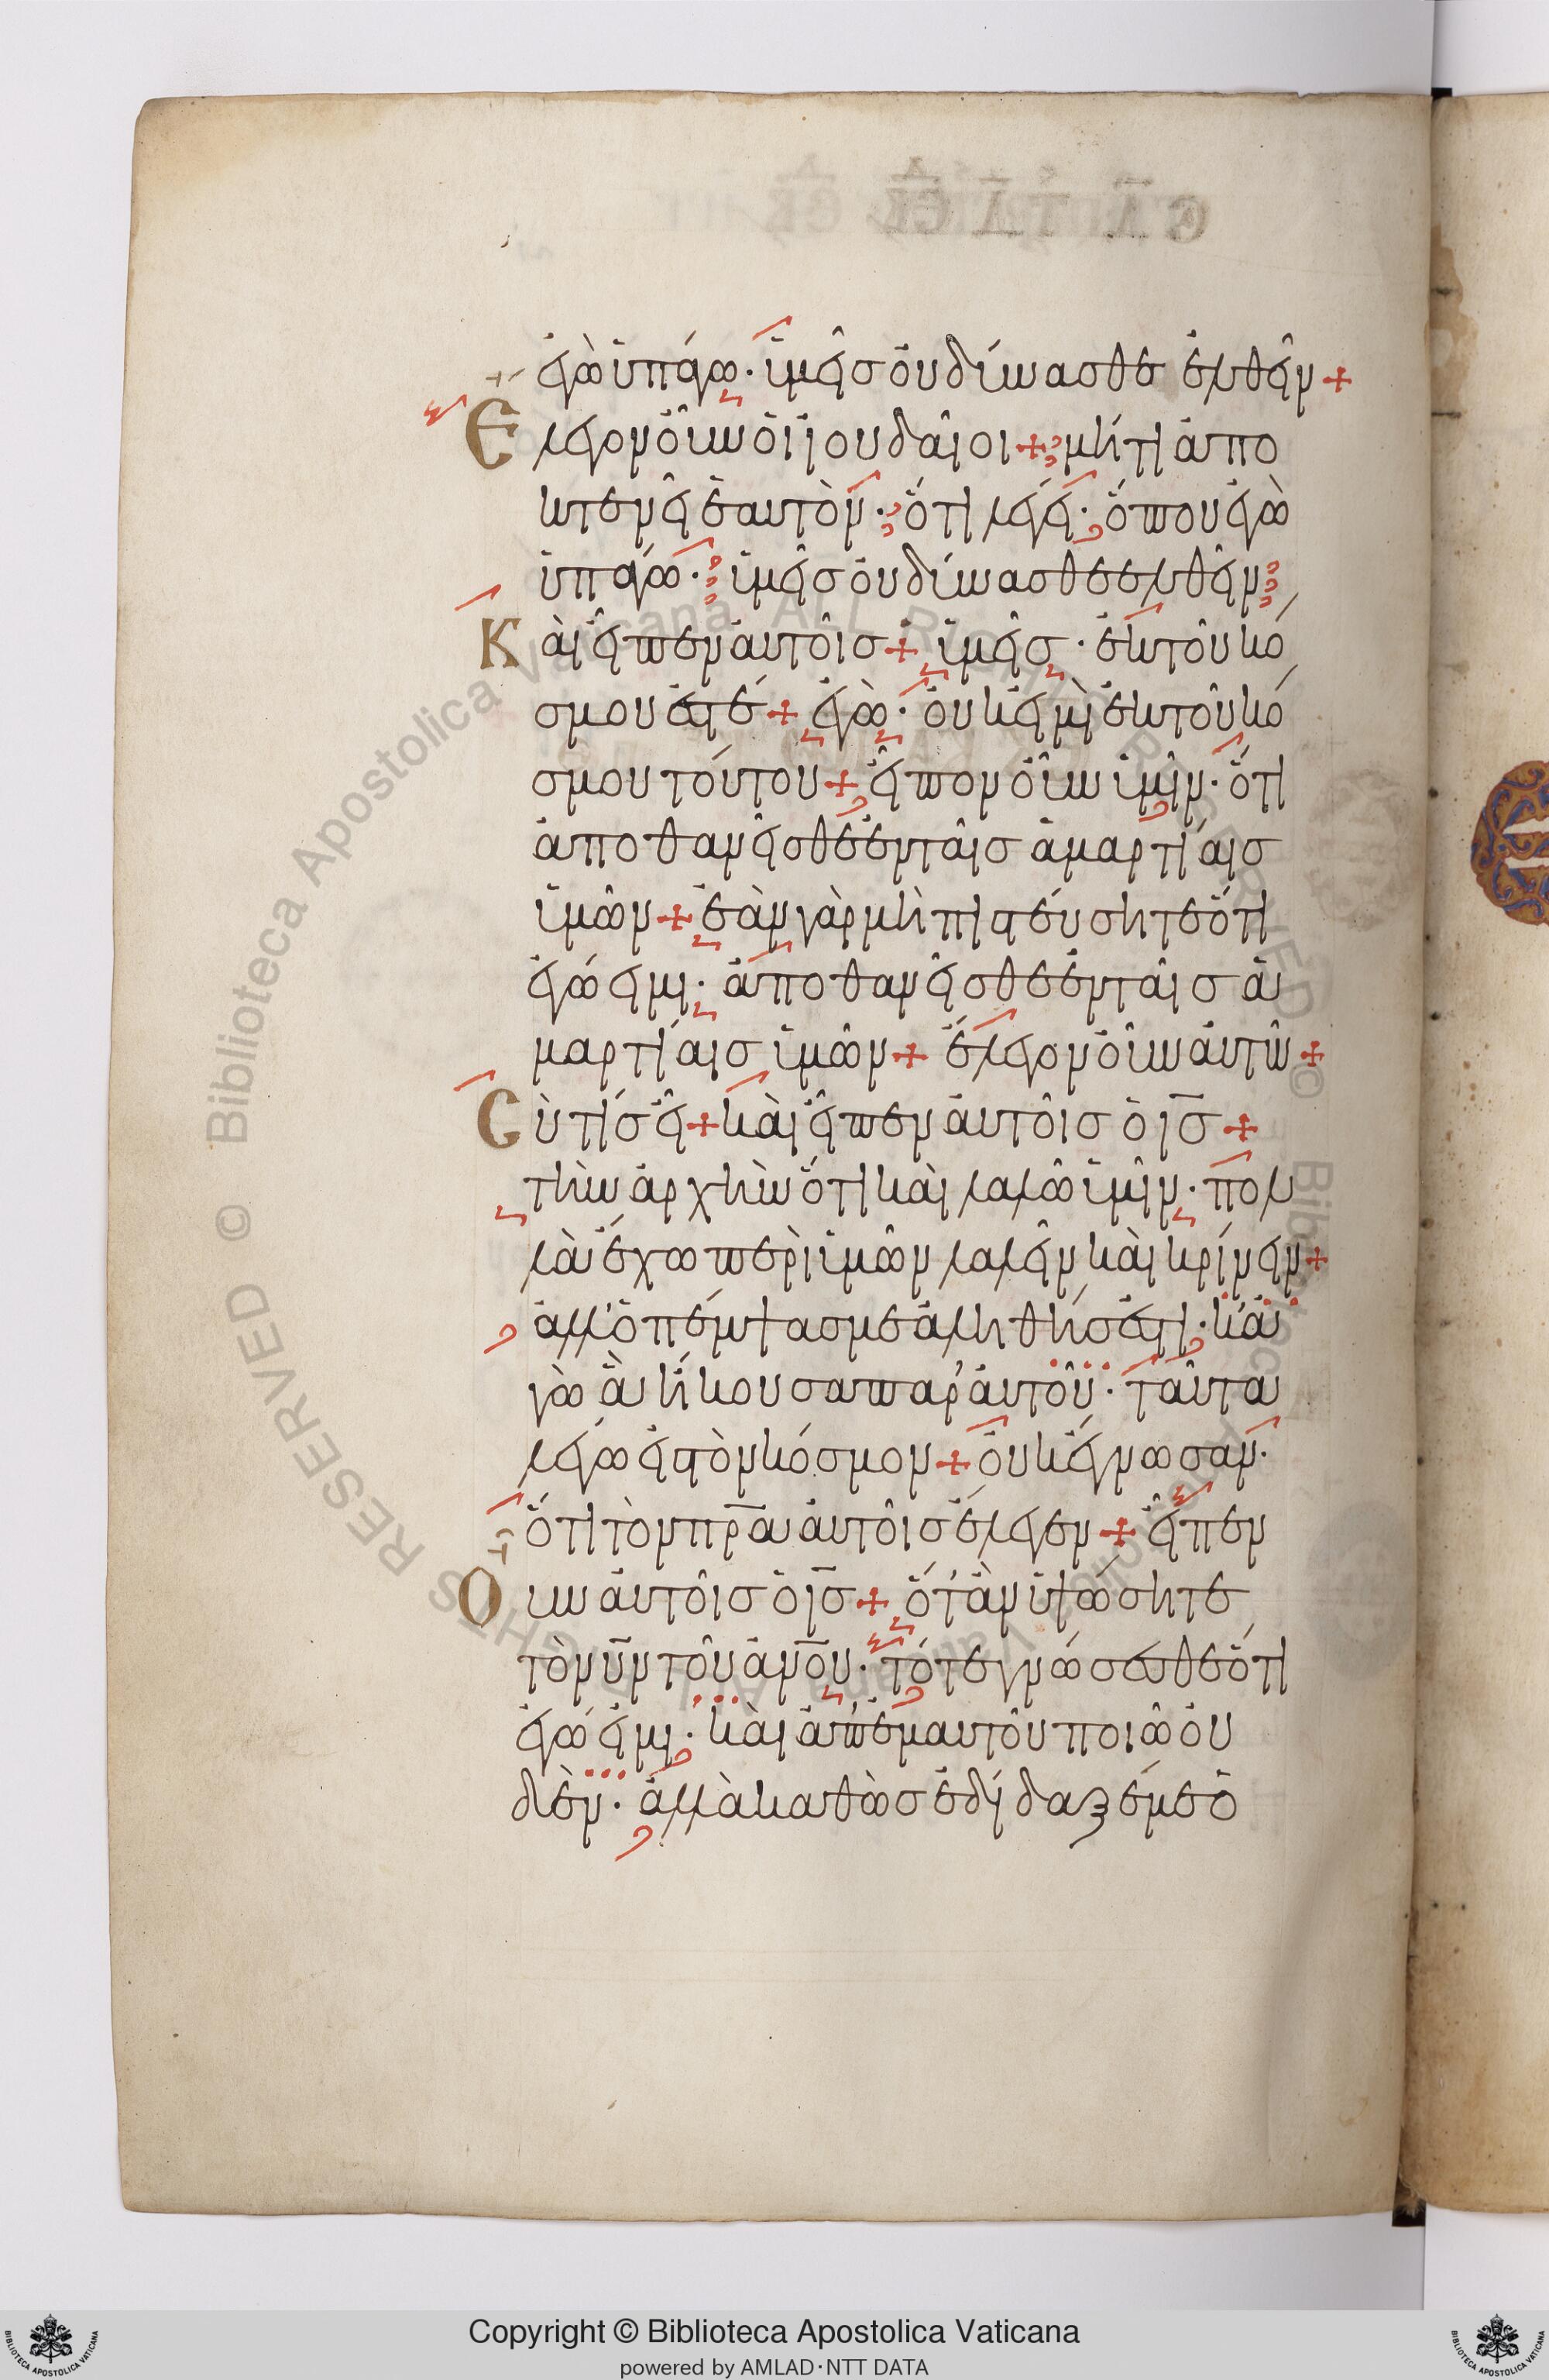 ἐγὼ ὑπάγω· ὑμεῖς οὐ δύνασθε ἐλθεῖν +
Ἔλεγον οὖν οἱ ἰουδαῖοι + μήτι ἀπο
κτενεῖ ἑαυτὸν· ὅτι λέγει· ὅπου ἐγὼ
ὑπάγω· ὑμεῖς οὐ δύνασθε ἐλθεῖν
Καὶ εἶπεν αὐτοῖς + ὑμεῖς· ἐκ τοῦ κό
σμου ἐστέ + ἐγὼ· οὐκ εἰμὶ ἐκ τοῦ κό
σμου τούτου + εἶπον οὖν ὑμῖν· ὅτι
ἀποθανεῖσθε ἐν ταῖς ἁμαρτίαις
ὑμῶν + ἐὰν γὰρ μὴ πιστεύσητε ὅτι
ἐγώ εἰμι· ἀποθανεῖσθε ἐν ταῖς ἁ
μαρτίαις ὑμῶν + ἔλεγον οὖν αὐτῶ +
Σὺ τίς εἶ + καὶ εἶπεν αὐτοῖς ὁ ις +
τὴν ἀρχὴν ὅτι καὶ λαλῶ ὑμῖν· πολ
λὰ ἔχω περὶ ὑμῶν λαλεῖν καὶ κρίνειν +
ἀλλ' ὁ πέμψας με ἀληθής ἐστι· κἀ
γὼ ἃ ἤκουσα παρ' αὐτοῦ· ταῦτα
λέγω εἰς τὸν κόσμον + οὐκ ἔγνωσαν·
ὅτι τὸν πρα αὐτοῖς ἔλεγεν + εἶπεν
Οὖν αὐτοῖς ὁ ις + ὅτ' ἂν ὑψώσητε
τὸν υν τοῦ ανου· τότε γνώσεσθε ὅτι
ἐγώ εἰμι· καὶ ἀπ' ἐμαυτοῦ ποιῶ οὐ
δὲν· ἀλλὰ καθὼς ἐδίδαξέ με ὁ
Copyright © Biblioteca Apostolica Vaticana
powered by AMLAD·NTT DATA